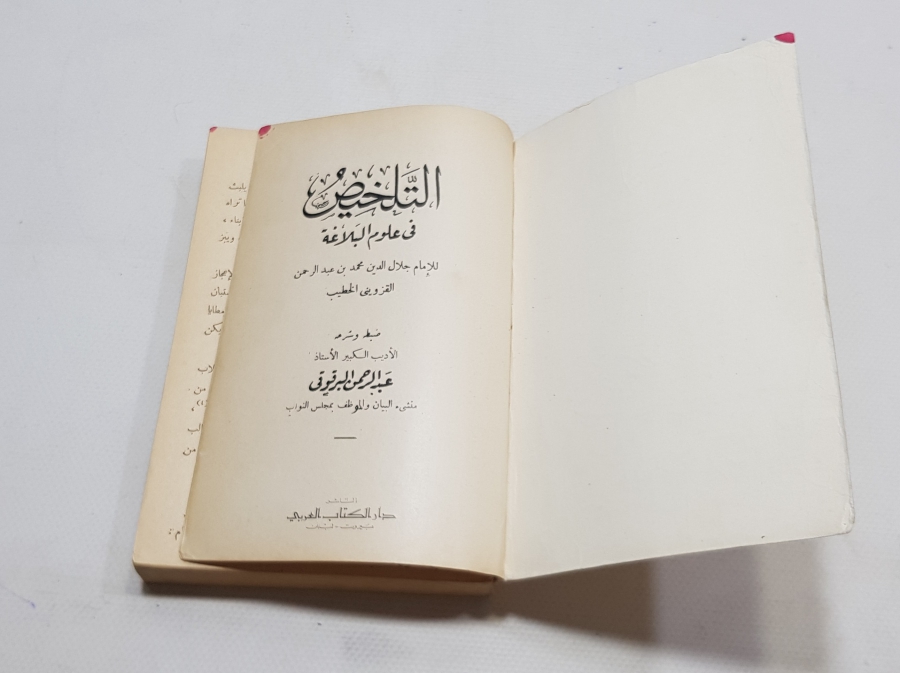 التَّلخيص
في علوم البلاغة
للإمام جلال الدين محمد بن عبد الرحمن
القزويني الخطيب
ضبط وشرحه
الأديب الكبير الأستاذ
عبد الرحمن البرقوقي
منشىء البيان والموظف بمجلس النواب
الناشر
دار الكتاب العربي
بيروت - لبنان